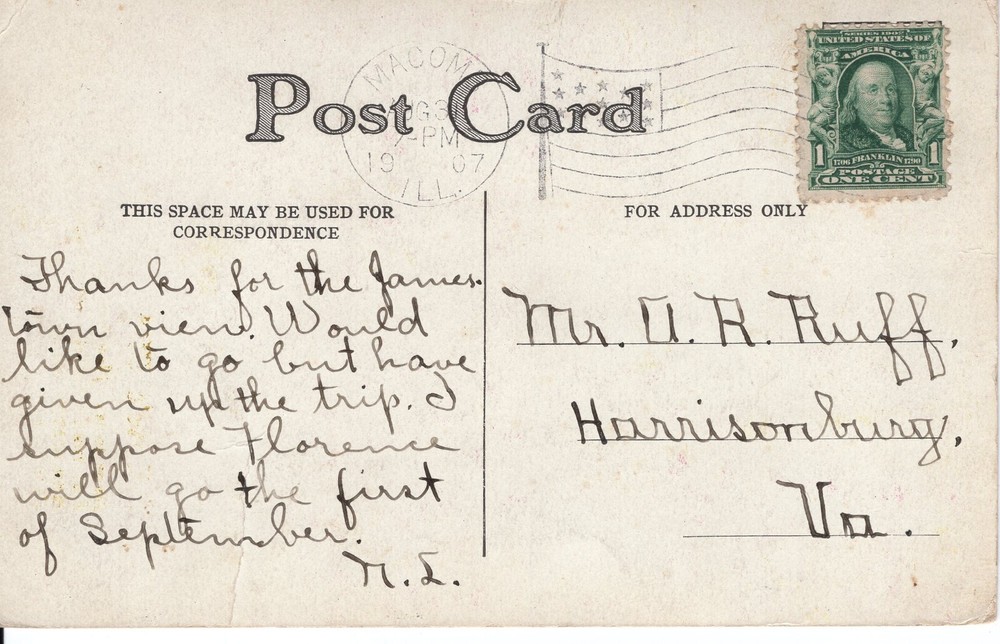 Post Card
MACOMB
AUG 3
-PM
19 07
ILL.
SERIES 1902
UNITED STATES OF
AMERICA
1 1706 FRANKLIN 1790 1
POSTAGE
ONE CENT
THIS SPACE MAY BE USED FOR
CORRESPONDENCE
FOR ADDRESS ONLY
Thanks for the James-
town view. Would
like to go but have
given up the trip. I
suppose Florence
will go the first
of September.
Mr. A. R. Ruff,
Harrisonburg,
Va.